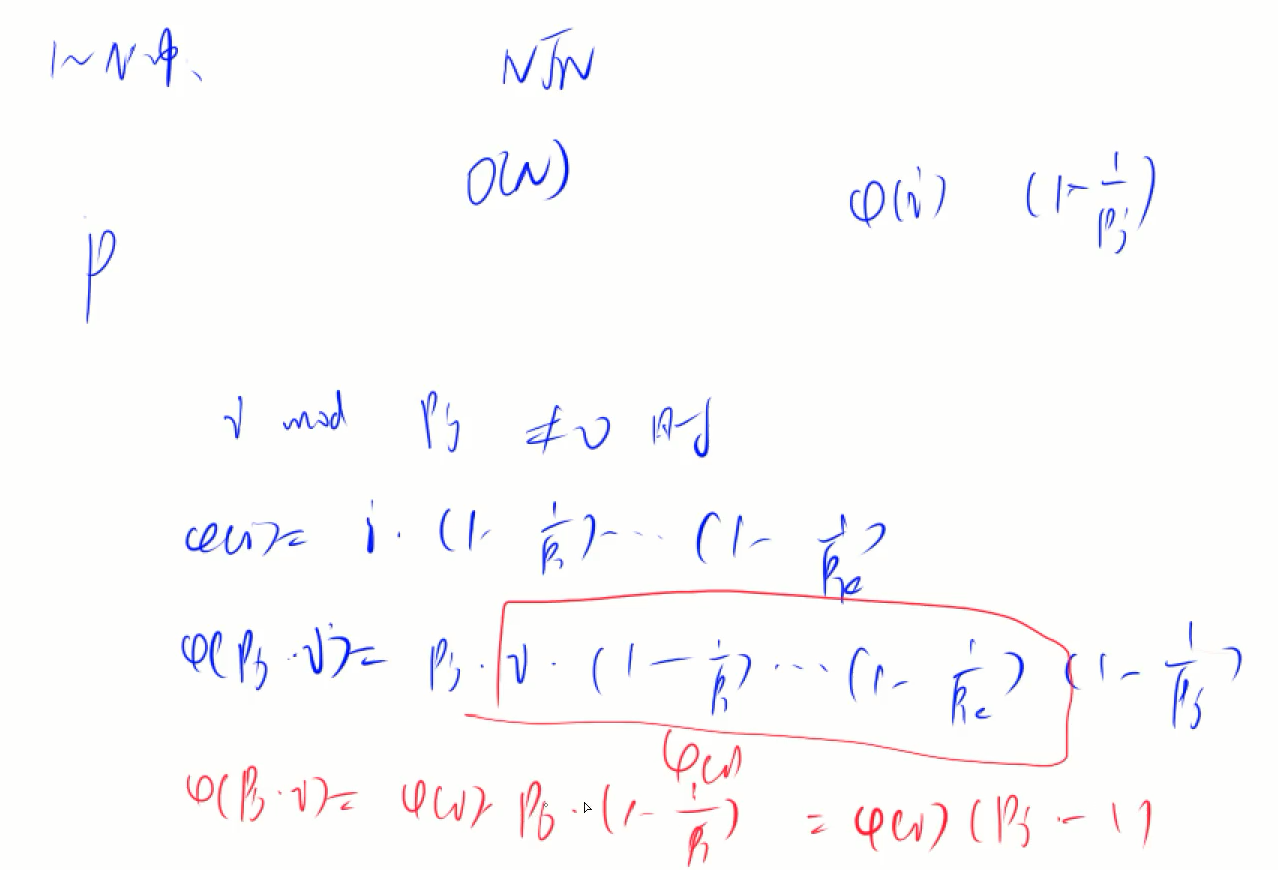 1~N中、 N√N
O(N)
φ(i) (1-1/Pj)
P
i mod Pj ≠0 时
φ(i)= i·(1-1/P1)···(1-1/Pk)
φ(Pj·i)= Pj·i·(1-1/P1)···(1-1/Pk)(1-1/Pj)
φ(i)
φ(Pj·i)= φ(i)·Pj·(1-1/Pj) = φ(i)(Pj-1)